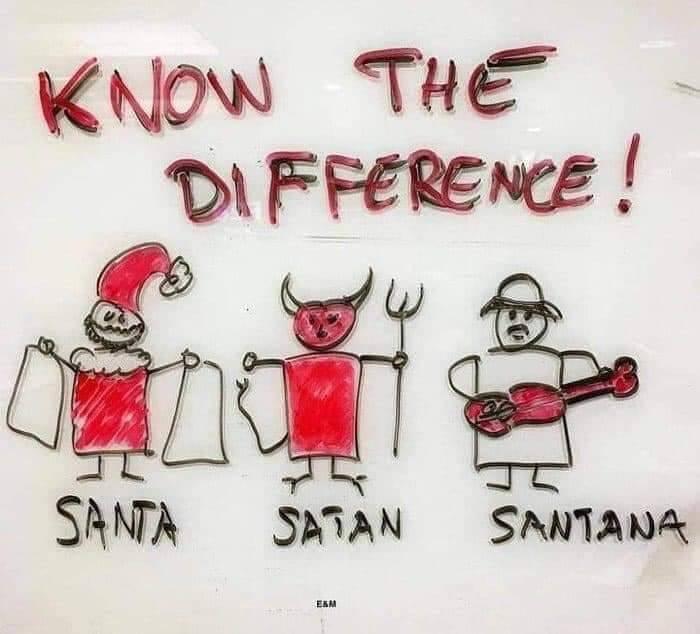 KNOW THE
DIFFERENCE!
SANTA SATAN SANTANA
E&M